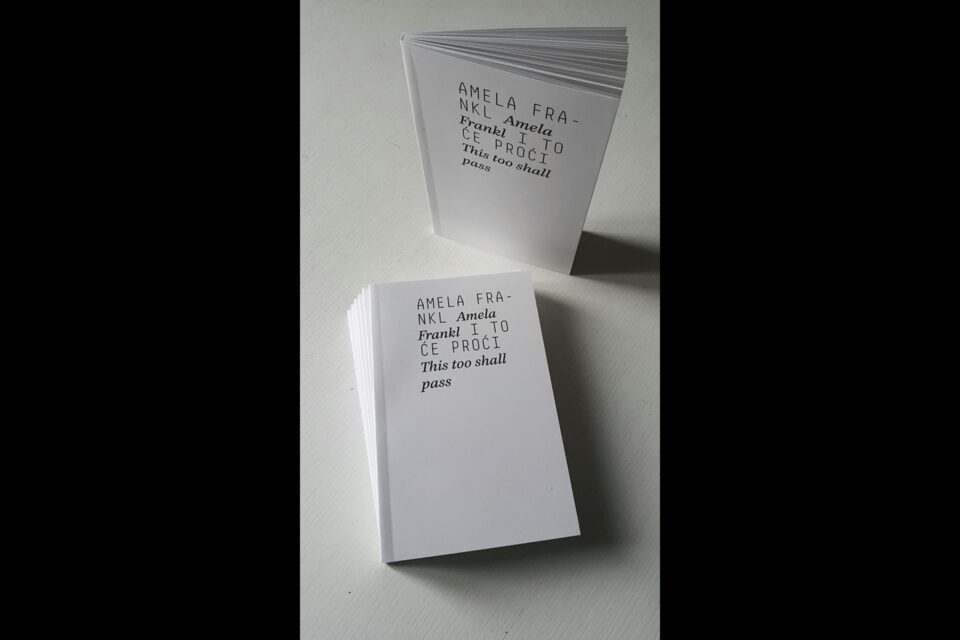 AMELA FRA-
NKL Amela
Frankl I TO
ĆE PROĆI
This too shall
pass
AMELA FRA-
NKL Amela
Frankl I TO
ĆE PROĆI
This too shall
pass